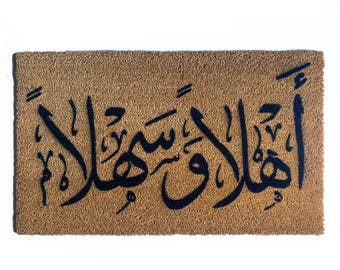 أَهْلاً وَسَهْلاً